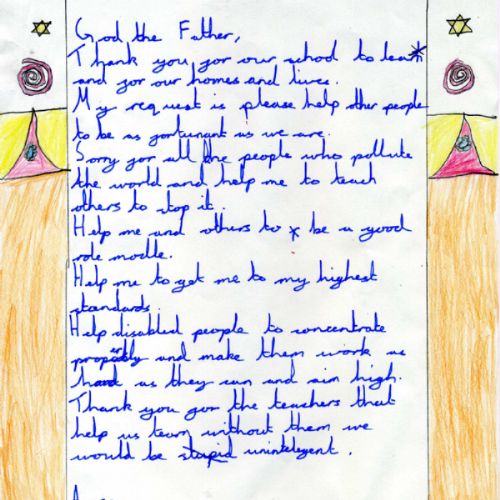 God the Father,
Thank you for our school to learn*
and for our homes and lives.
My request is please help other people
to be as fortunant as us we are.
Sorry for all the people who pollute
the world and help me to teach
others to stop it.
Help me and others to * be a good
role modle.
Help me to get me to my highest
standards.
Help disabled people to concentrate
properly and make them work as
hard as they can and aim high.
Thank you for the teachers that
help us learn without them we
would be stupid unintelegent.